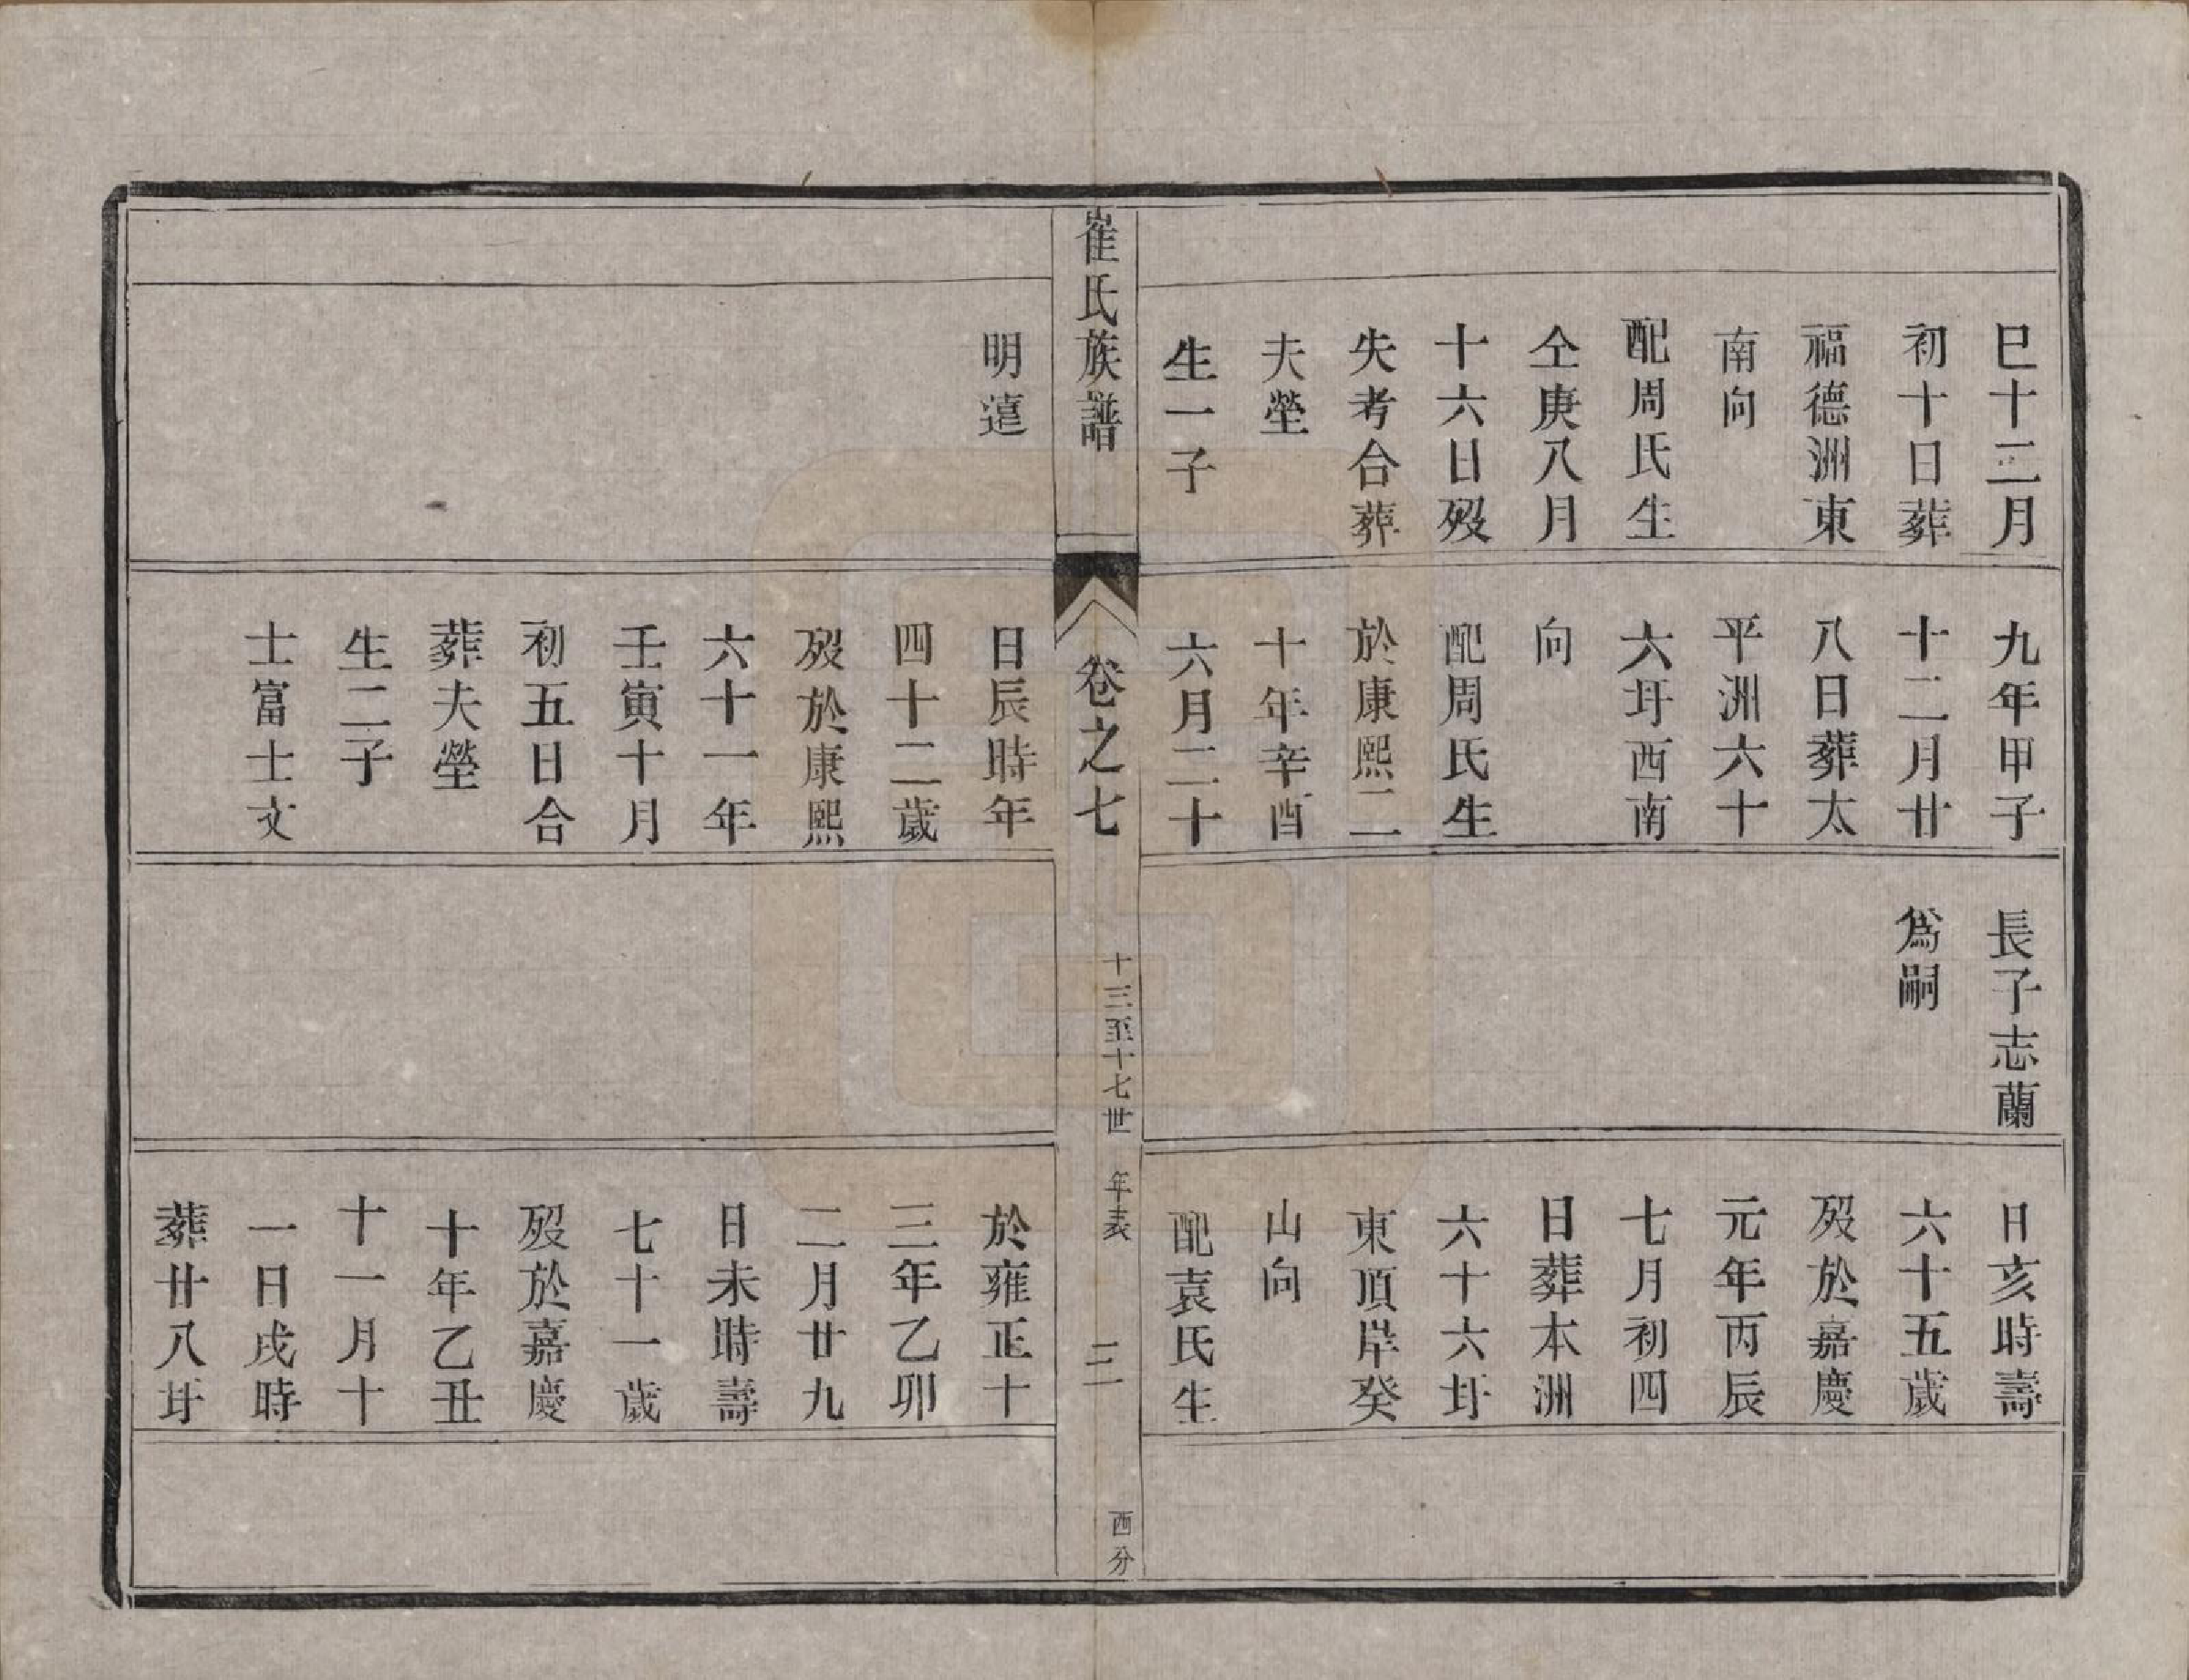 巳十二月
初十日葬
福德洲東
南向
配周氏生
仝庚八月
十六日殁
失考合葬
夫塋
生一子
九年甲子
十二月廿
八日葬太
平洲六十
六圩西南
向
配周氏生
於康熙二
十年辛酉
六月二十
長子志蘭
爲嗣
日亥時壽
六十五歲
殁於嘉慶
元年丙辰
七月初四
日葬本洲
六十六圩
東頂岸癸
山向
配袁氏生
崔氏族譜
卷之七
十三至十七世
年表
三
西分
明
日辰時年
四十二歲
殁於康熙
六十一年
壬寅十月
初五日合
葬夫塋
生二子
士富士文
於雍正十
三年乙卯
二月廿九
日未時壽
七十一歲
殁於嘉慶
十年乙丑
十一月十
一日戌時
葬廿八圩